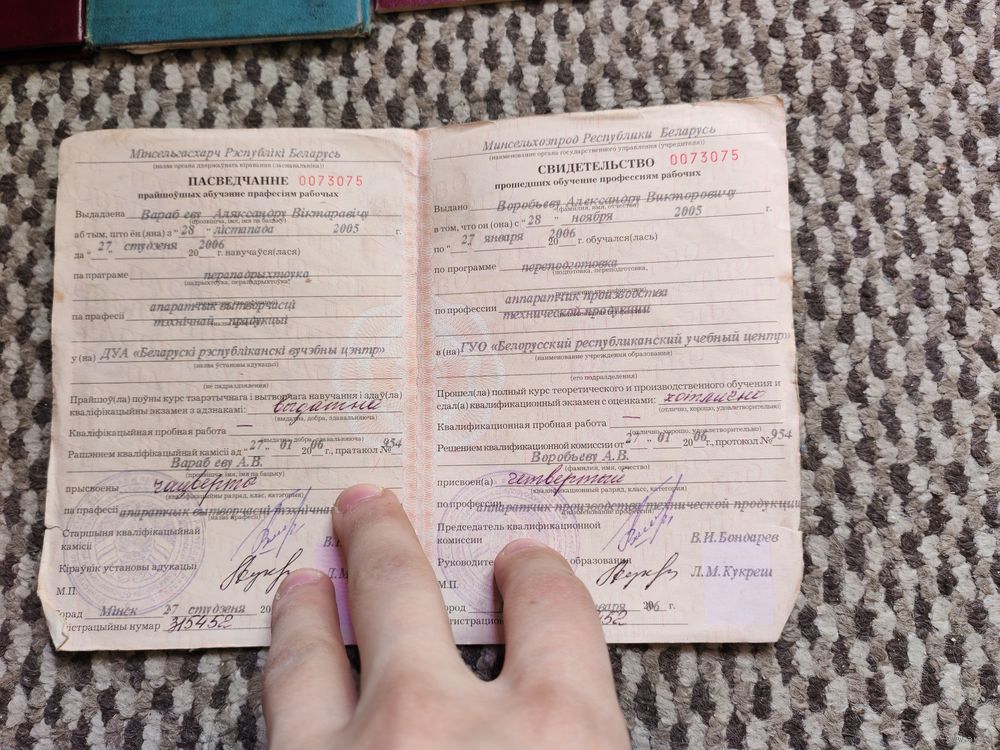 Мінсельгасхарч Рэспублікі Беларусь
(назва органа дзяржаўнага кіравання (заснавальніка))
ПАСВЕДЧАННЕ 0073075
прайшоўшых абучэнне прафесіям рабочых
Выдадзена Вараб еву Аляксандру Віктаравічу
(прозвішча, імя, імя па бацьку)
аб тым, што ён (яна) з " 28 " лістапада 2005 г.
да " 27 " студзеня 2006 20 г. навучаўся(лася)
па праграме перападрыхтоука
(падрыхтоўка, перападрыхтоўка,
па прафесіі апаратчык вытворчасці
тэхнічнай прадукцыі
у (на) ДУА «Беларускі рэспубліканскі вучэбны цэнтр»
(назва ўстановы адукацыі)
(яе падраздзялення)
Прайшоў(ла) поўны курс тэарэтычнага і вытворчага навучання і здаў(ла)
кваліфікацыйны экзамен з адзнакамі: выдатна
(выдатна, добра, здавальняюча)
Кваліфікацыйная пробная работа —
(выдатна, добра, здавальняюча)
Рашэннем кваліфікацыйнай камісіі ад " 27 " 01 20 06 г., пратакол № 954
Вараб еву А.В.
(прозвішча, імя, імя па бацьку)
прысвоены чацверты
(кваліфікацыйны разрад, клас, катэгорыя)
па прафесіі апаратчык вытворчасці тэхнічна
(назва прафесіі)
Старшыня кваліфікацыйнай
камісіі
Кіраўнік установы адукацыі
М.П.
горад Мінск 27 студзеня 20
істрацыйны нумар 315452
Минсельхозпрод Республики Беларусь
(наименование органа государственного управления (учредителя))
СВИДЕТЕЛЬСТВО 0073075
прошедших обучение профессиям рабочих
Выдано Воробьеву Александру Викторовичу
(фамилия, имя, отчество)
в том, что он (она) с " 28 " ноября 2005 г.
по " 27 января 2006 20 г. обучался(лась)
по программе переподготовка
(подготовка, переподготовка,
повышение квалификации)
по профессии аппаратчик производства
технической продукции
в (на) ГУО «Белорусский республиканский учебный центр»
(наименование учреждения образования)
(его подразделения)
Прошел(ла) полный курс теоретического и производственного обучения и
сдал(а) квалификационный экзамен с оценками:
(отлично, хорошо, удовлетворительно)
Квалификационная пробная работа —
(отлично, хорошо, удовлетворительно)
Решением Квалификационной комиссии от " 27 " 01 20 06 г., протокол № 954
Воробьеву А.В.
(фамилия, имя, отчество)
присвоен(а) четвертый
(квалификационный разряд, класс, категория)
по профессии аппаратчик производства технической продукции
(наименование профессии)
Председатель квалификационной
комиссии В.И.Бондарев
Руководите образования Л.М.Кукреш
М.П.
ород нваря 20 06 г.
гистрацион 52